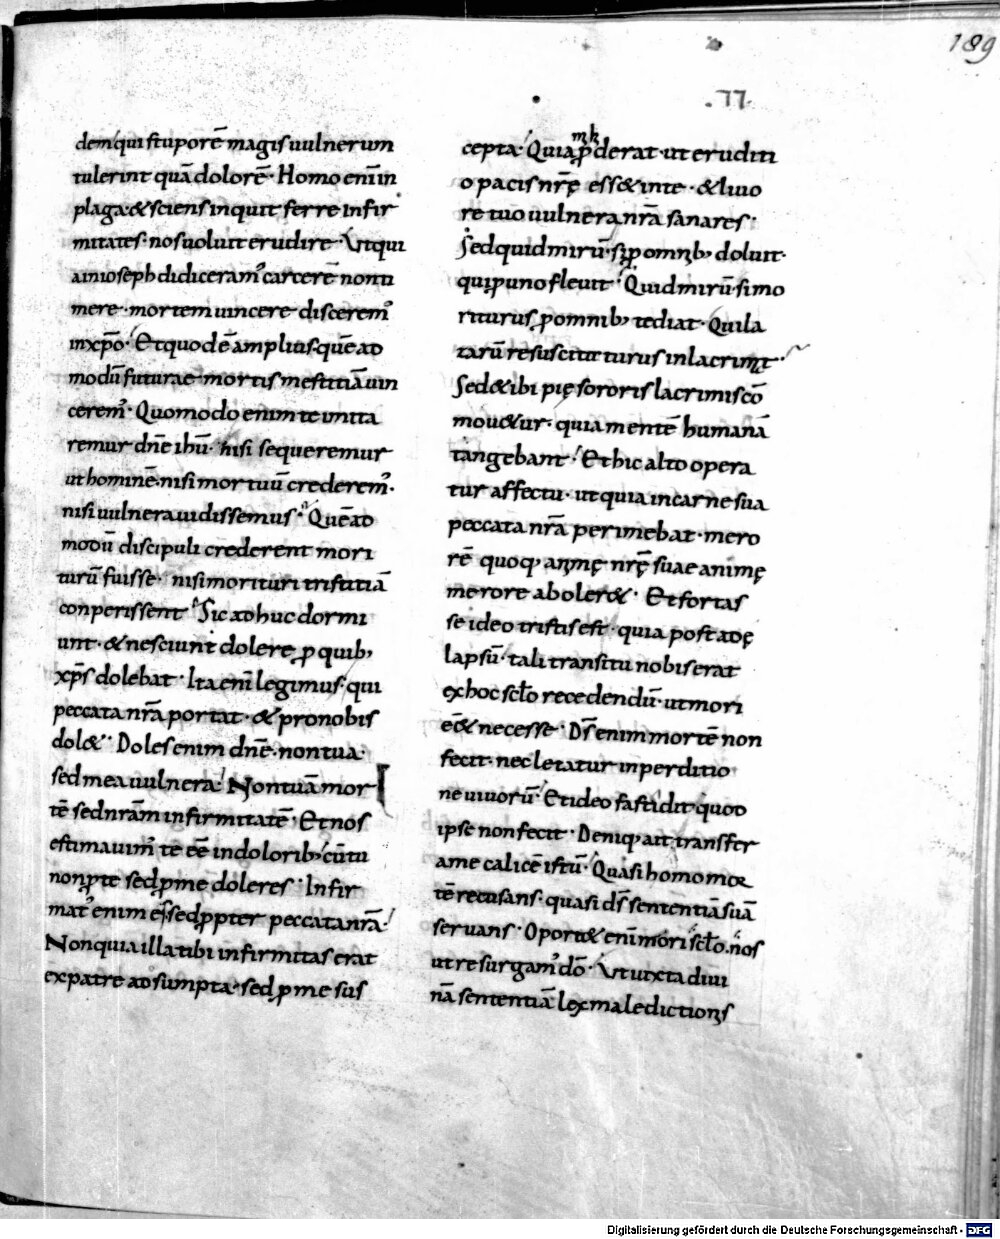 189
.77.
dem qui stuporē magis uulnerum
tulerint quā dolorē · Homo eni̅ in
plaga · & sciens inquit ferre infir
mitates · nos uoluit erudire · Ut qui
a in ioseph didiceram᾽ carcerē non ti
mere · mortem uincere discerem᾽
in xp̅o · Et quod ē amplius quēad
modū futurae mortis mestitiā uin
cerem᾽ · Quomodo enim te imita
remur dn̅e ihū · nisi sequeremur
ut hominē · nisi mortuū crederem᾽ ·
nisi uulnera uidissemus · Quēad
modū discipuli crederent mori
turū fuisse · nisi morituri tristitiā
conperissent · Sic adhuc dormi
unt · & nesciunt dolere ꝓ quib;
xp̅s dolebat · Ita eni̅ legimus · qui
peccata nr̅a portat · & pro nobis
dol& · Doles enim dn̅e · non tua ·
sed mea uulnera · Non tuā mor
tē sed nr̅am infirmitatē · Et nos
estimauim᾽ te ee̅ in dolorib; cū tu
non ꝓ te sed ꝓ me doleres · Infir
mat᾽ enim es · sed ꝓpter peccata nr̅a ·
Non quia illa tibi infirmitas erat
ex patre adsumpta · sed ꝓ me sus
cepta · Quia ꝓderat · ut eruditi
o pacis nr̅ę ess& in te · & liuo
re tuo uulnera nr̅a sanares ·
Sed quid mirū · si ꝓ omnib; doluit ·
qui ꝓ uno fleuit · Quid mirū · si mo
riturus ꝓ omnib; tediat · Qui la
zarū resusciturus inlacrimat ·
Sed & ibi pię sororis lacrimis cō
mou&ur · quia mentē humanā
tangebant · Et hic alto opera
tur affectu · ut quia in carne sua
peccata nr̅a perimebat · mero
rē quoq; animę nr̅ę suae animę
merore aboler& · Et fortas
se ideo tristis est · quia post adę
lapsū · tali transitu nobis erat
ex hoc scl̅o recedendū · ut mori
e̅& necesse · Ds̅ enim mortē non
fecit · nec letatur in perditio
ne uiuorū · Et ideo fastidit quod
ipse non fecit · Deniq; ait transfer
a me calicē istū · Quasi homo mor
tē recusans · quasi ds̅ sententiā suā
seruans · Oport& eni̅ mori scl̅o · nos
ut resurgam᾽ dō · Ut iuxta diui
nā sententiā lex maledictionis
Digitalisierung gefördert durch die Deutsche Forschungsgemeinschaft - DFG